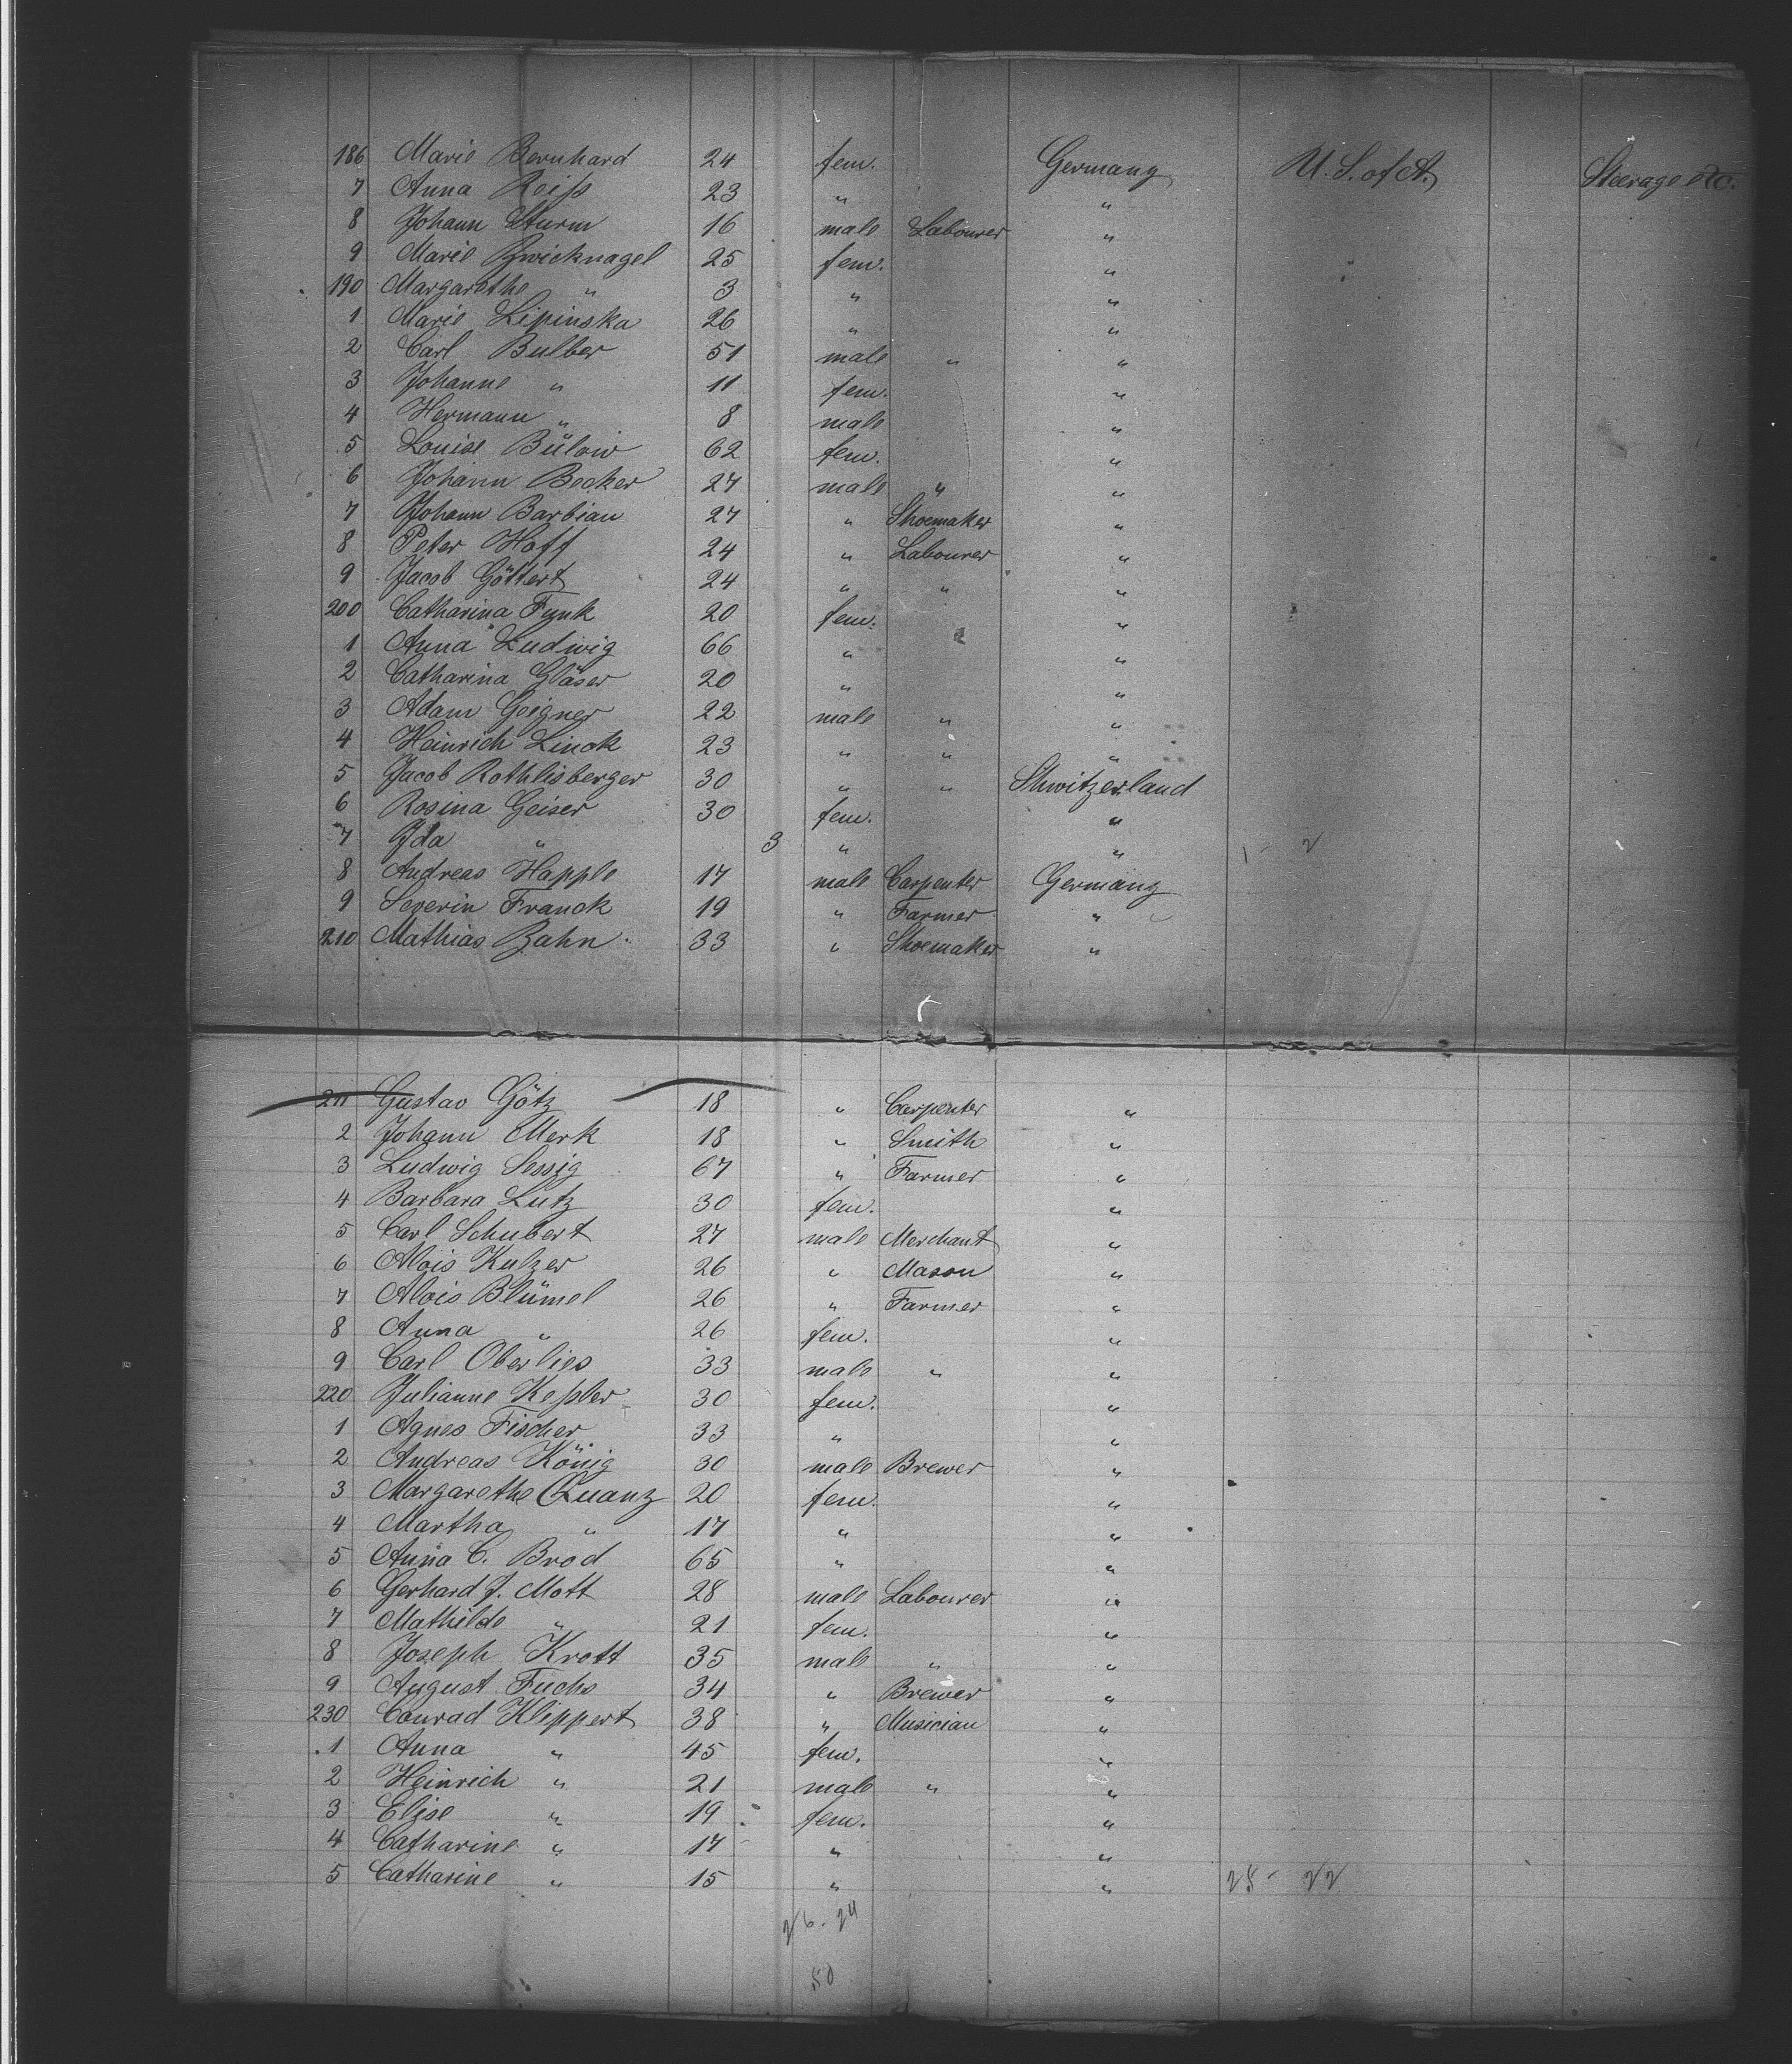 186 Marie Bernhard 24 fem. Germany U. S. of A. Steerage etc.
7 Anna Reiß 23 " "
8 Johann Sturm 16 male Labourer "
9 Marie Zwicknagel 25 fem. "
190 Margarethe " 3 " "
1 Marie Lipinska 26 " "
2 Carl Bulber 51 male " "
3 Johanne " 11 fem. "
4 Hermann " 8 male "
5 Louise Bülow 62 fem. "
6 Johann Becker 27 male " "
7 Johann Barbian 27 " Shoemaker "
8 Peter Hoff 24 " Labourer "
9 Jacob Göttert 24 " " "
200 Catharina Funk 20 fem. "
1 Anna Ludwig 66 " "
2 Catharina Gläser 20 " "
3 Adam Geigner 22 male " "
4 Heinrich Linck 23 " " "
5 Jacob Rothlisberger 30 " " Shwitzerland
6 Rosina Geiser 30 fem. "
7 Ida " 3 " " 1 - 2
8 Andreas Happle 17 male Carpenter Germany
9 Severin Franck 19 " Farmer "
210 Mathias Zahn 33 " Shoemaker "
211 Gustav Götz 18 " Carpenter "
2 Johann Merk 18 " Smith "
3 Ludwig Sessig 67 " Farmer "
4 Barbara Lutz 30 fem. "
5 Carl Schubert 27 male Merchant "
6 Alois Kulzer 26 " Mason "
7 Alois Blümel 26 " Farmer "
8 Anna " 26 fem. "
9 Carl Oberlies 33 male " "
220 Julianne Keßler 30 fem. "
1 Agnes Fischer 33 " "
2 Andreas König 30 male Brewer "
3 Margarethe Quanz 20 fem. "
4 Martha " 17 " "
5 Anna C. Brod 65 " "
6 Gerhard J. Mott 28 male Labourer "
7 Mathilde " 21 fem. "
8 Joseph Krott 35 male " "
9 August Fuchs 34 " Brewer "
230 Conrad Klippert 38 " Musician "
1 Anna " 45 fem. "
2 Heinrich " 21 male " "
3 Elise " 19 fem. "
4 Catharine " 17 " "
5 Catharine " 15 " " 28 - 22
26 - 24
50